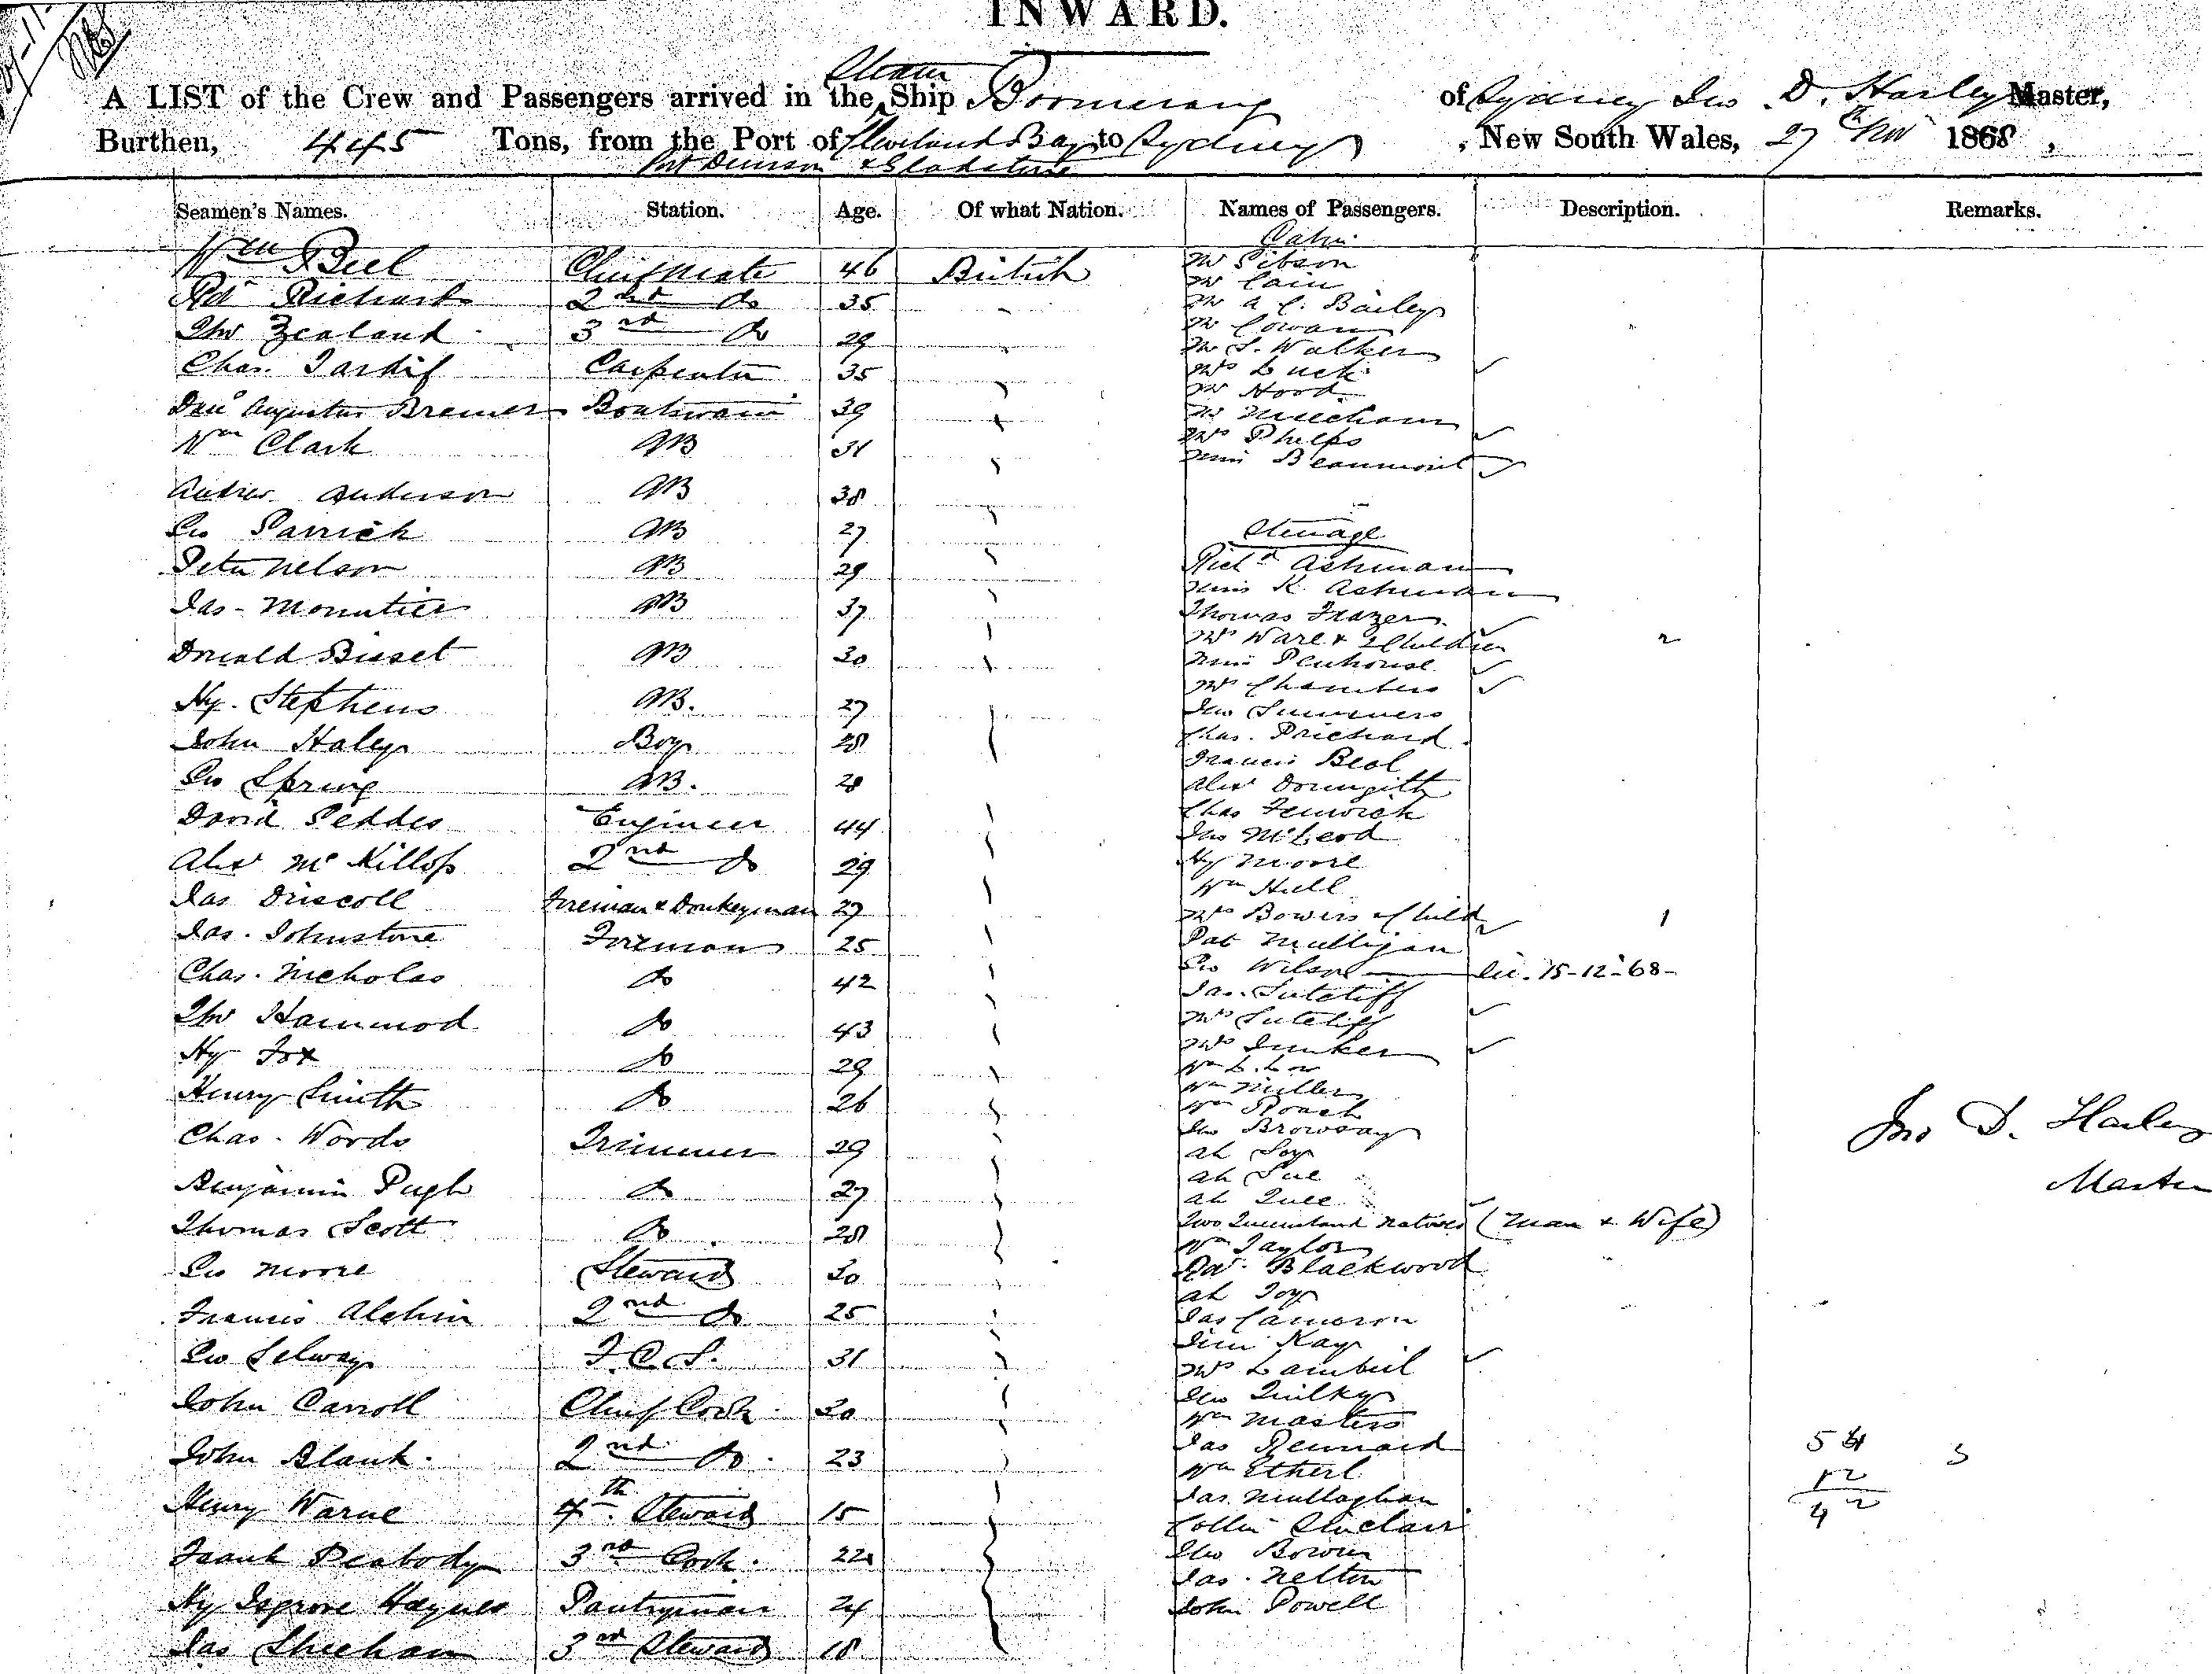 INWARD.
A LIST of the Crew and Passengers arrived in the Steam Ship Boomerang of Sydney Jno D. Harley Master,
Burthen, 445 Tons, from the Port of Cleveland Bay to Sydney, New South Wales, 27th Nov 1868,
Port Denison & Gladstone
Seamen's Names. Station. Age. Of what Nation. Names of Passengers. Description. Remarks.
Wm Beel Chief Mate 46 British
Rd Richards 2nd do 35
Thos Zealand 3rd do 29
Chas. Tardif Carpenter 35
Danl Augustus Bremer Boatswain 39
Wm Clark AB 31
Andrew Anderson AB 38
Geo Parrick AB 27
Peter Nelson AB 29
Jas - AB 37
Donald Bisset AB 30
Hy. Stephens AB. 27
John Haley Boy
Geo Spring AB. 28
David Peddes Engineer 44
Alex McKillop 2nd do 29
Jas Driscoll Fireman & Donkeyman 27
Jas. Johnstone Foreman 25
Chas. Nicholas do 42
Thos Hammod do 43
Hy Fox do 29
Henry Smith do 26
Chas. Words Trimmer 29
Benjamin Pugh do 27
Thomas Scott do 28
Geo Moore Steward 30
Francis Alchin 2nd do 25
Geo Selway F.C.S. 31
John Carroll Chief Cook. 30
John Blank. 2nd do. 23
Henry Warne 4th. Steward 15
Frank Peabody 3rd Cook. 22
Hy Isgrove Haynes Pantryman 24
Jas Sheehan 3rd Steward 18
Cabin
Mr Gibson
Mr Cain
Mr A. C. Bailey
Mr Cowan
Mr S. Walker
Mrs Luck
Mr Hood
Mr Meecham
Mrs Phelps
Miss Beaumont
Steerage
Richd Ashman
Miss K. Ashman
Thomas Frazer
Mrs Ware & 2 Children 2
Miss Penhouse
Mrs Chambers
Jno Summers
Chas. Prichard
Francis Beal
Alex
Chas Fenwick
Jno McLeod
Hy Moore
Wm Hull
Mrs Bowers & Child 1
Pat Mulligan
Geo Wilson 15-12-68-
Jas. Sutcliff
Mrs Sutcliff
Mrs Junker
Wm
Wm Miller
Wm Roach
Jno Browsay
Ah Soy
Ah Sue
Ah Quee
Two Queensland Natives (Man & Wife)
Wm Taylor
Rd. Blackwood
Ah Toy
Jas Cameron
Jim Kay
Mrs
Jno Quilky
Wm Masters
Jas Rennard
Wm Etherl
Jas. Mullaghan
Collin Sinclair
Jno Bowen
Jas. Nelton
John Powell
Jno D. Harley
Master
54 3
12
42